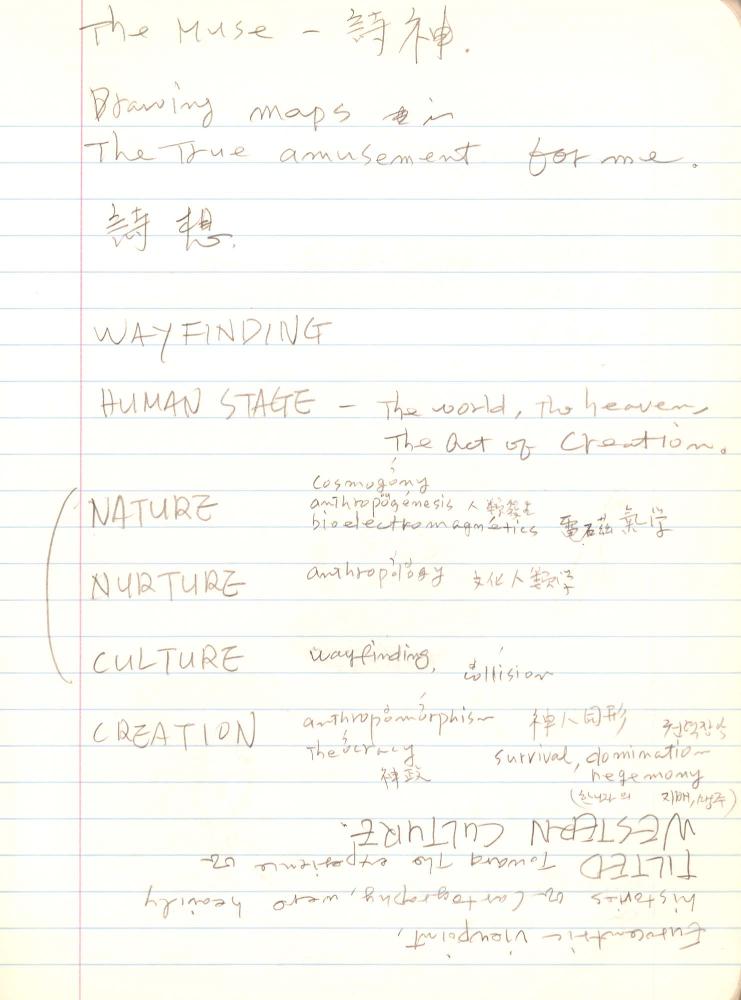 The Muse – 詩神.
Drawing maps in
The True amusement for me.
詩想.
WAYFINDING
HUMAN STAGE – The world, The heaven,
The act of Creation.
cosmogony
NATURE anthropogenesis 人類發生
bioelectromagnetics 電石磁氣学
NURTURE anthropology 文化人類学
CULTURE wayfinding, collision
CREATION anthropomorphism 神人同形
Theocracy survival, domination
神政 hegemony
지배,
Eurocentric viewpoint,
histories on Cartography, were heavily
TILTED Toward The experience on
WESTERN CULTURE.